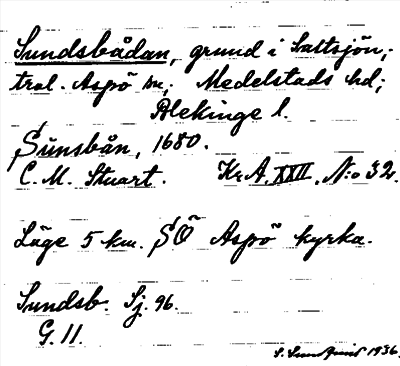 Sundsbådan, grund i Saltsjön;
tral. Aspö sn; Medelstads hd;
Blekinge l.
Sünsbån, 1680.
C. M. Stuart. Kr A. XXII, N:o 32.
Läge 5 km. SÖ Aspö kyrka.
Sundsb. Sj. 96.
G. 11.
S. Sundquist 1936.